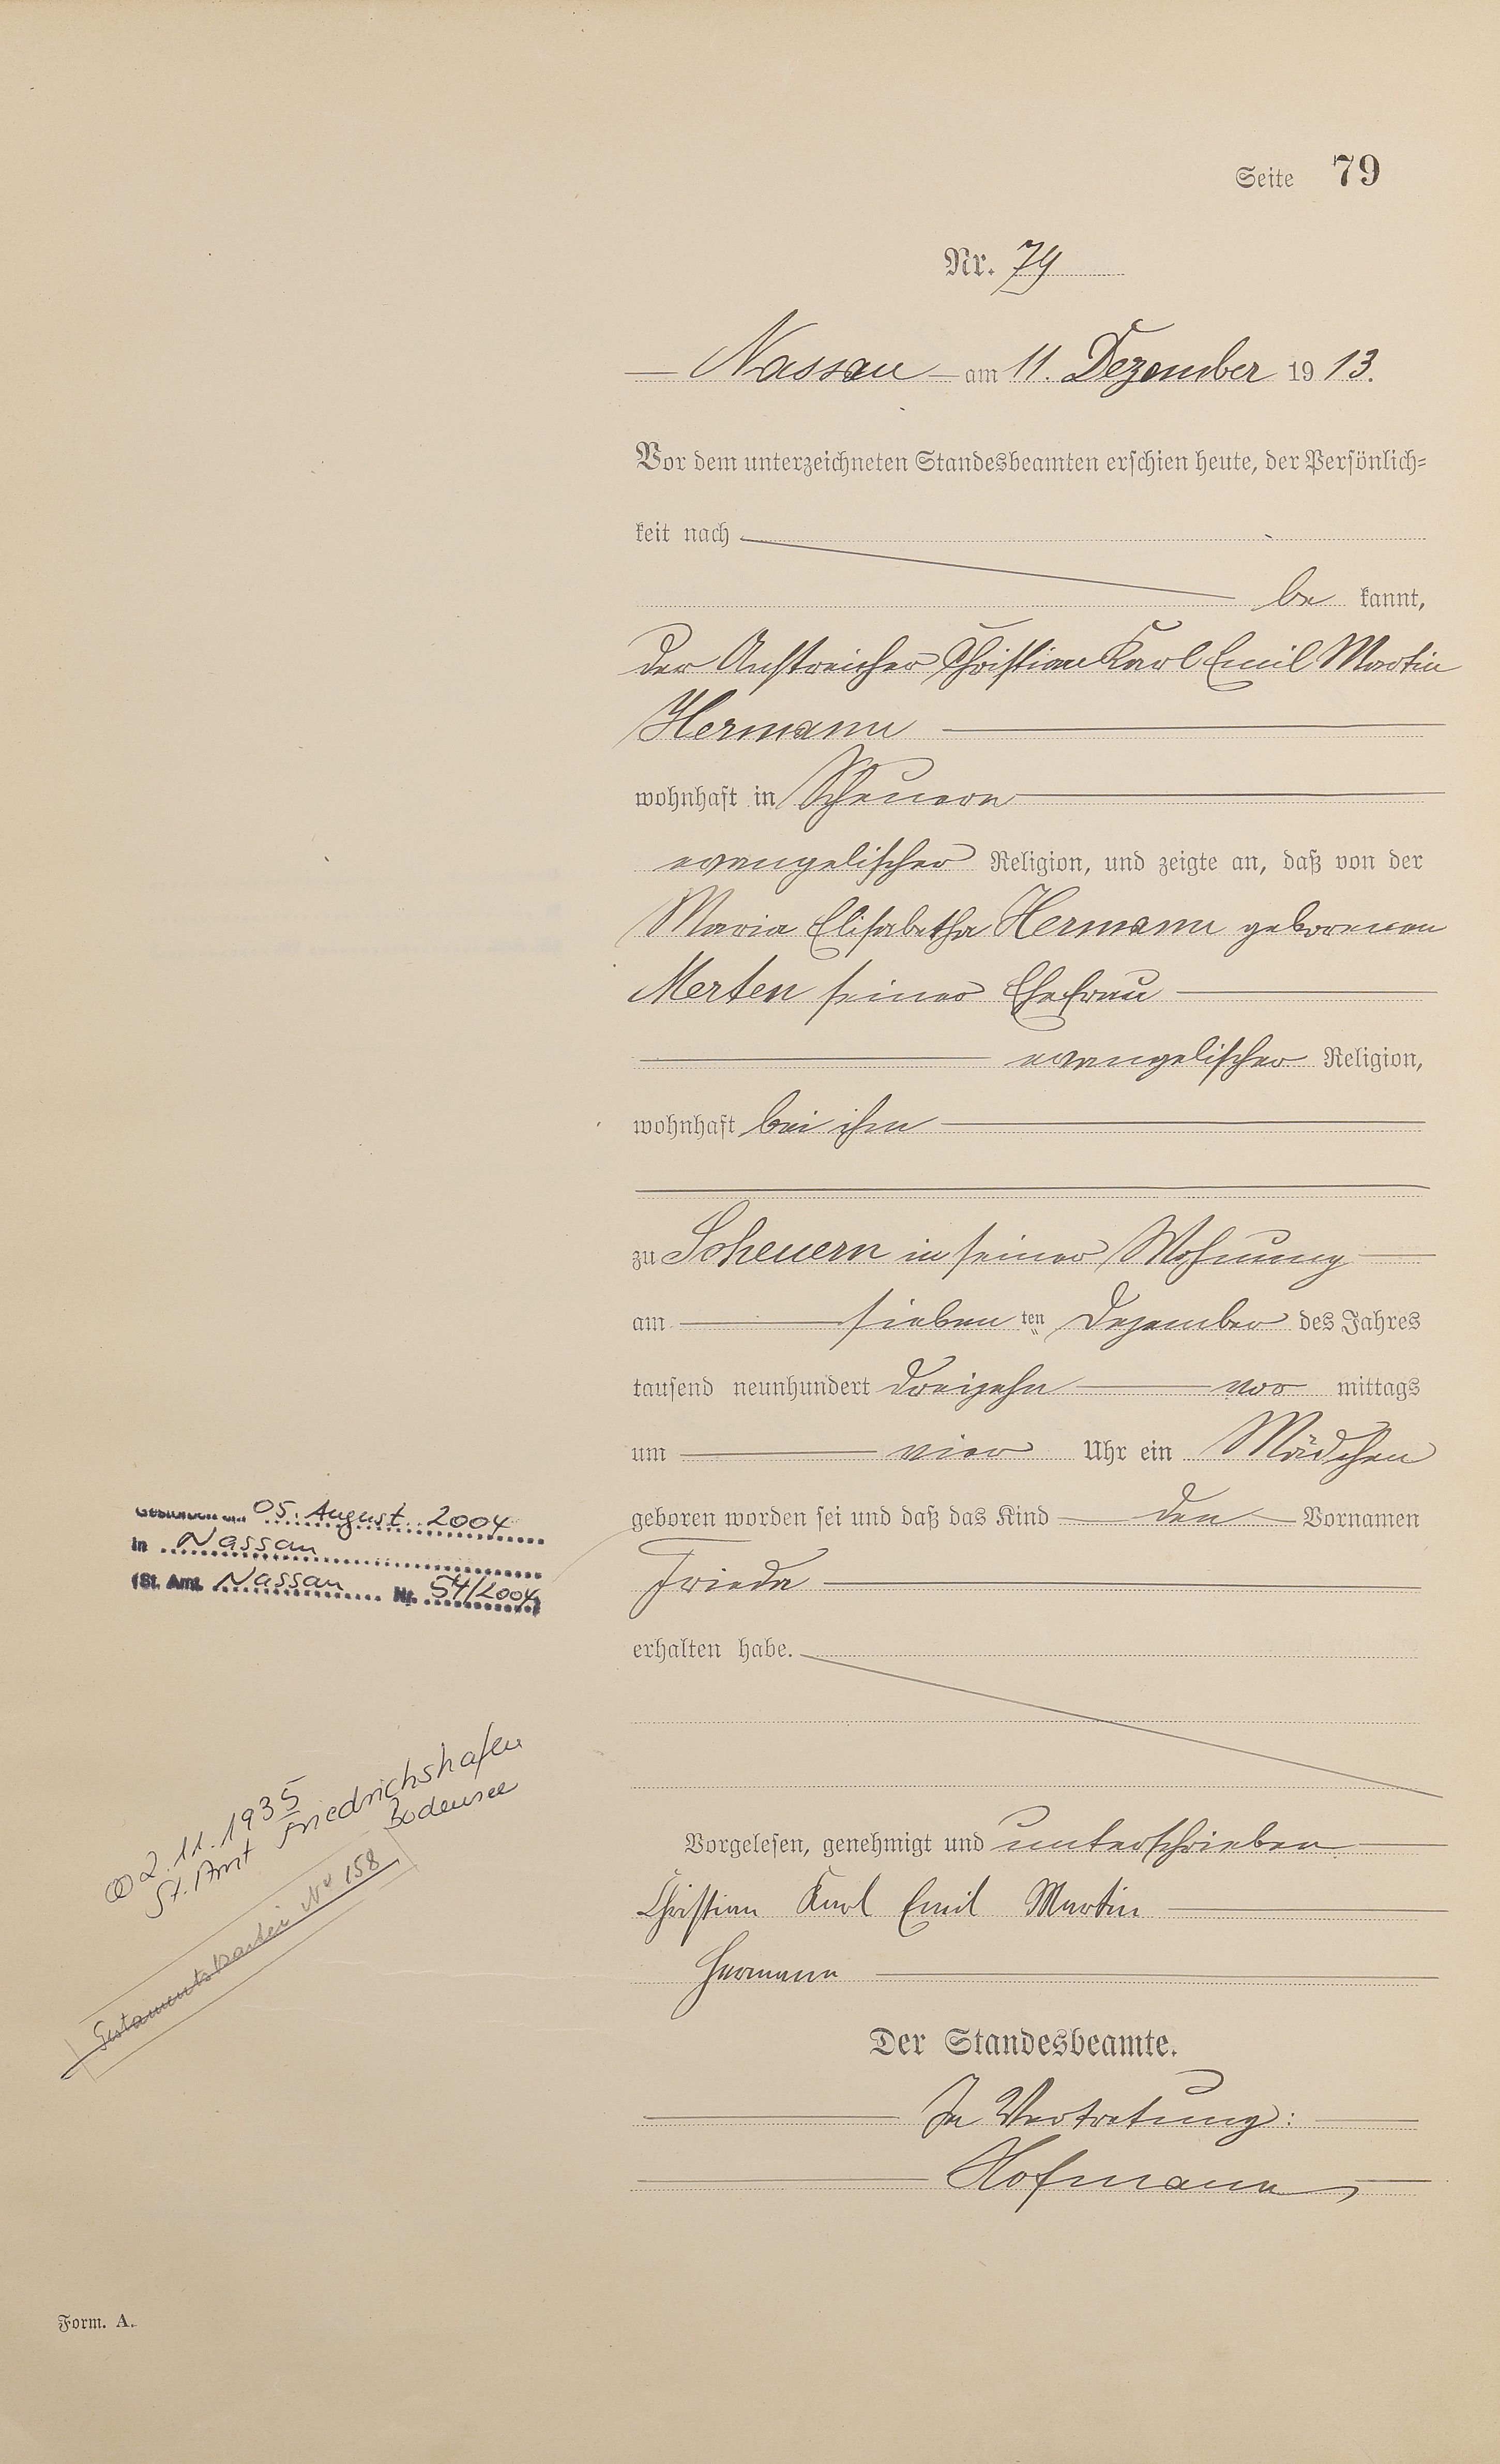 Seite 79
Nr. 79
Nassau am 11. Dezember 1913.
Vor dem unterzeichneten Standesbeamten erschien heute, der Persönlich-
keit nach
be kannt,
der Anstreicher Christian Karl Emil Martin
Hermann
wohnhaft in Scheuern
evangelischer Religion, und zeigte an, daß von der
Maria Elisabetha Hermann geborenen
Merten seiner Ehefrau
evangelischer Religion,
wohnhaft bei ihm
zu Scheuern in seiner Wohnung
am siebenten Dezember des Jahres
tausend neunhundert dreizehn vor mittags
um vier Uhr ein Mädchen
geboren worden sei und daß das Kind den Vornamen
Frieda
erhalten habe.
Vorgelesen, genehmigt und unterschrieben
Christian Karl Emil Martin
Hermann
Der Standesbeamte.
In Vertretung:
Hofmann
Gestorben am 05. August 2004
in Nassau
(St. Amt Nassau Nr. 54/2004)
⚭ 2.11.1935
St. Amt Friedrichshafen
Bodensee
Testamentskartei No 158
Form. A.